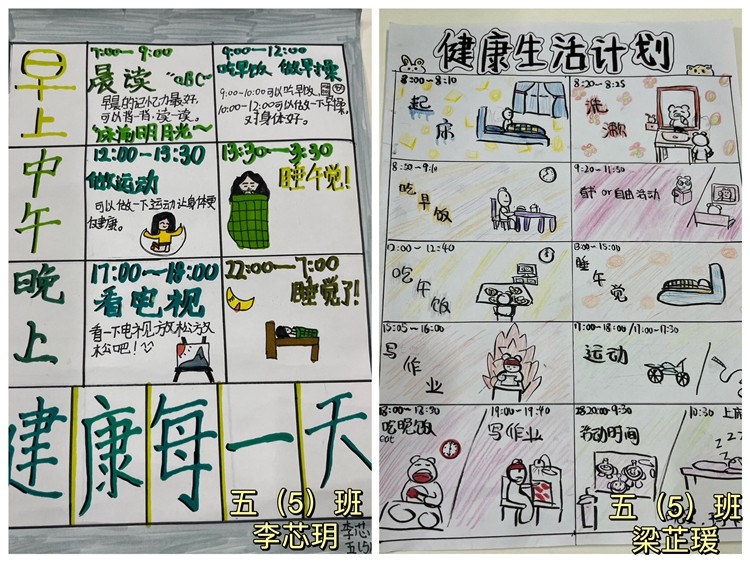 早上
7:00—9:00
晨读 "aBC~
早晨的记忆力最好,
可以背一背,读一读。
床前明月光~
9:00—12:00
吃早饭 做早操
9:00—10:00可以吃早饭。
10:00—12:00可以做一下早操,
对身体好。
中午
12:00—13:30
做运动
可以做一下运动让身体更
健康。
13:30—3:30
睡午觉!
晚上
17:00—18:00
看电视
看一下电视放松放
松吧!
22:00—7:00
睡觉了!
健康每一天
五（5）班
李芯玥
健康生活计划
8:00~8:10
起床
8:20~8:25
洗漱
8:30~9:10
吃早饭
9:20~11:50
看书 or 自由活动
12:00~12:40
吃午饭
13:00~15:00
睡午觉
15:05~16:00
写作业
17:00~18:00/17:00~17:30
运动
18:00~18:30
吃晚饭
eat
19:00~19:40
写作业
20:00~9:30
活动时间
10:30 上床
五（5）班
梁芷瑗